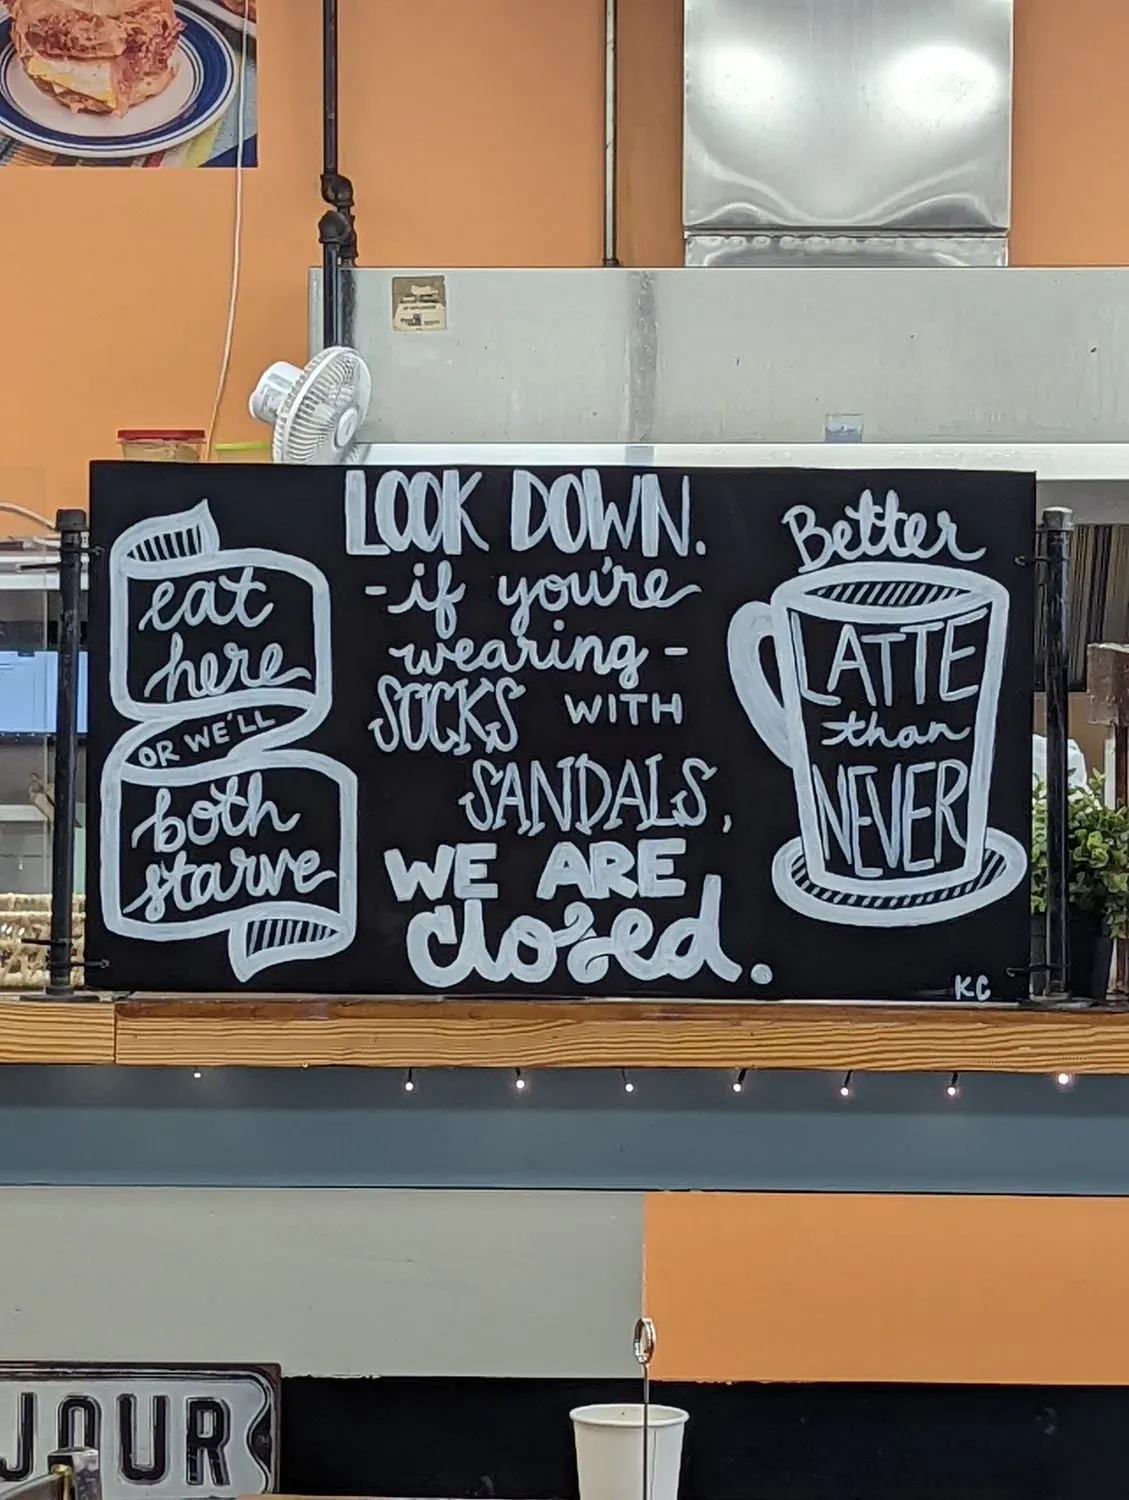 eat
here
OR WE'LL
both
starve
LOOK DOWN.
-if you're
wearing-
SOCKS WITH
SANDALS,
WE ARE
closed.
Better
LATTE
than
NEVER
KC
JOUR